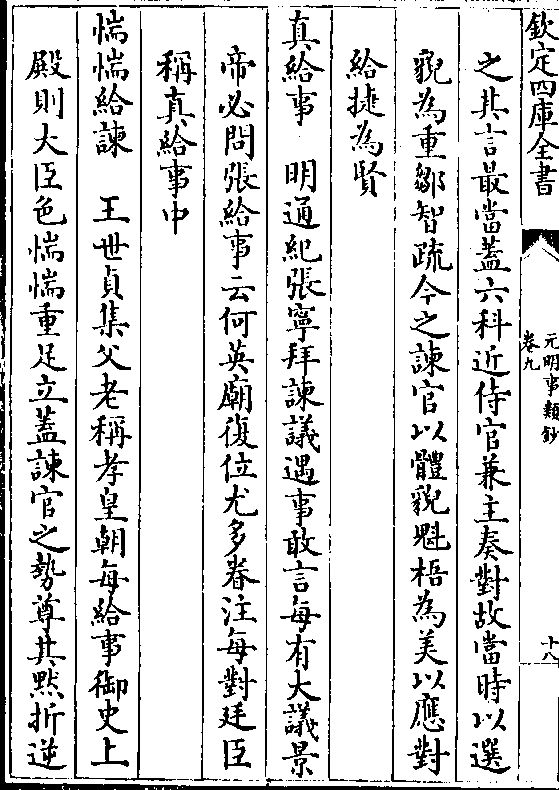 欽定四庫全書
元明事類鈔
卷九
十八
之其言最當蓋六科近侍官兼主奏對故當時以選
貌為重鄒智疏今之諫官以體貌魁梧為美以應對
給捷為賢
真給事　明通紀張寧拜諫議遇事敢言每有大議景
帝必問張給事云何英廟復位尤多眷注每對廷臣
稱真給事中
惴惴給諫　王世貞集父老稱孝皇朝每給事御史上
殿則大臣色惴惴重足立蓋諫官之勢尊其黙折逆